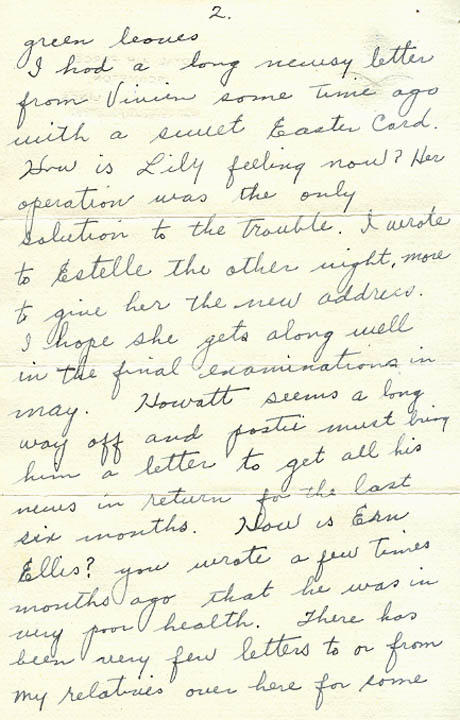 2.
green leaves
I had a long newsy letter
from Vivien some time ago
with a sweet Easter Card.
How is Lily feeling now? Her
operation was the only
solution to the trouble. I wrote
to Estelle the other night, more
to give her the new address.
I hope she gets along well
in the final examinations in
may. Howatt seems a long
way off and postie must bring
him a letter to get all his
news in return for the last
six months. How is Ern
Ellis? you wrote a few times
months ago that he was in
very poor health. There has
been very few letters to or from
my relatives over here for some